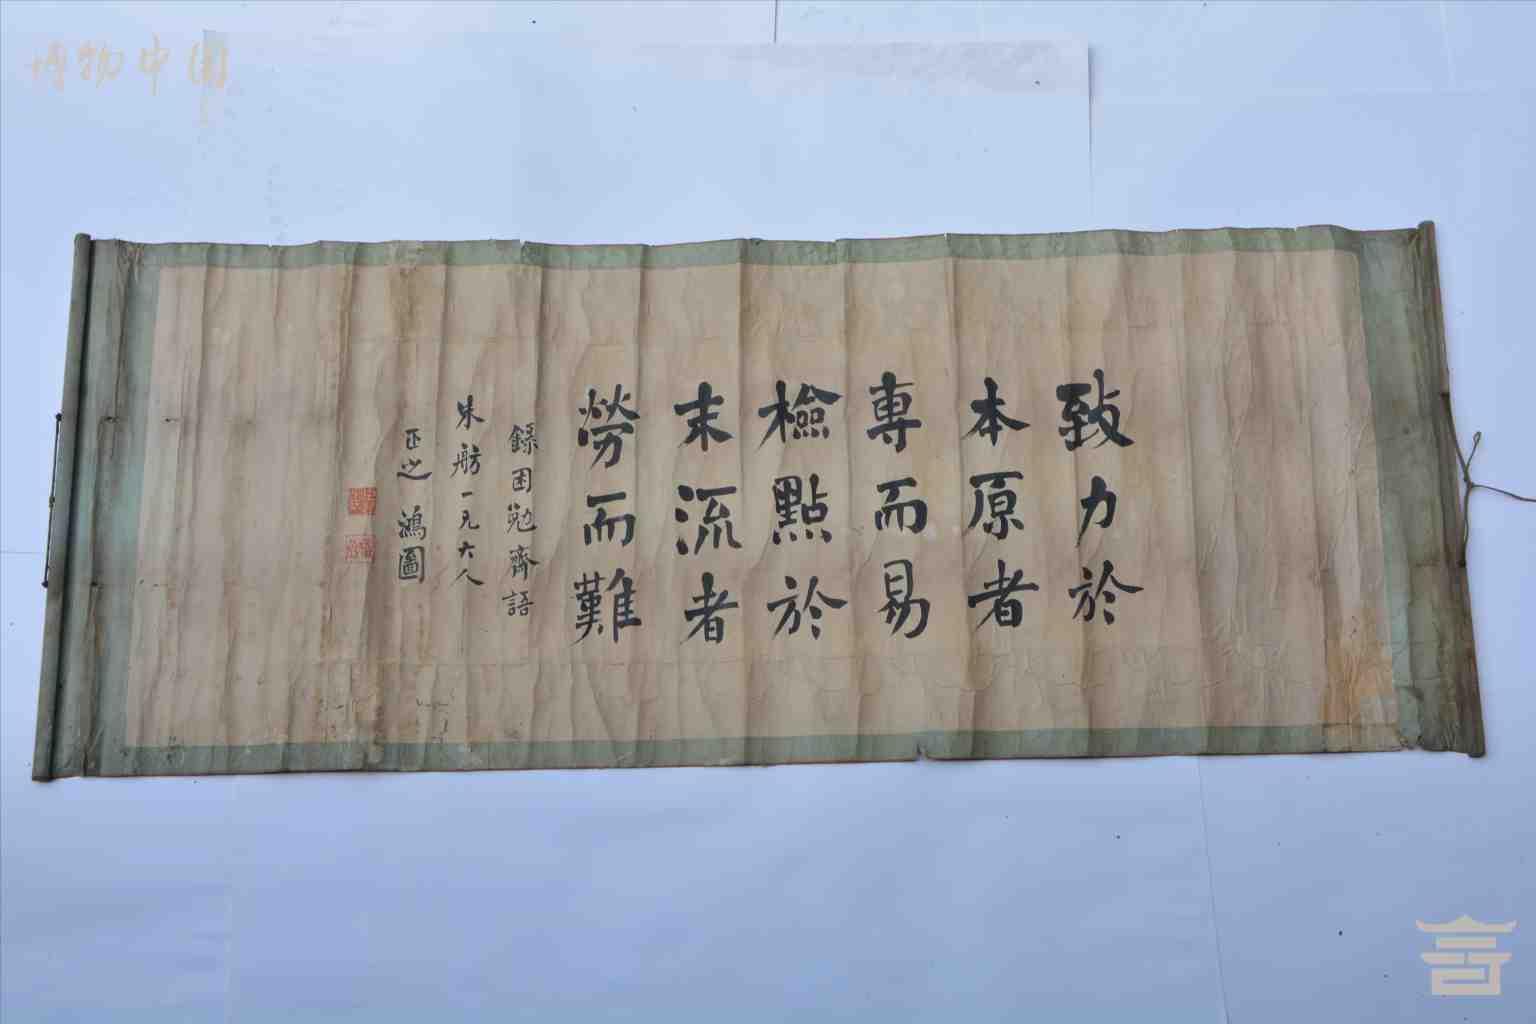 博物中国
致力於
本原者
專而易
檢點於
末流者
勞而難
錄困勉齋語
朱舫一兄大人
正之 鴻圖